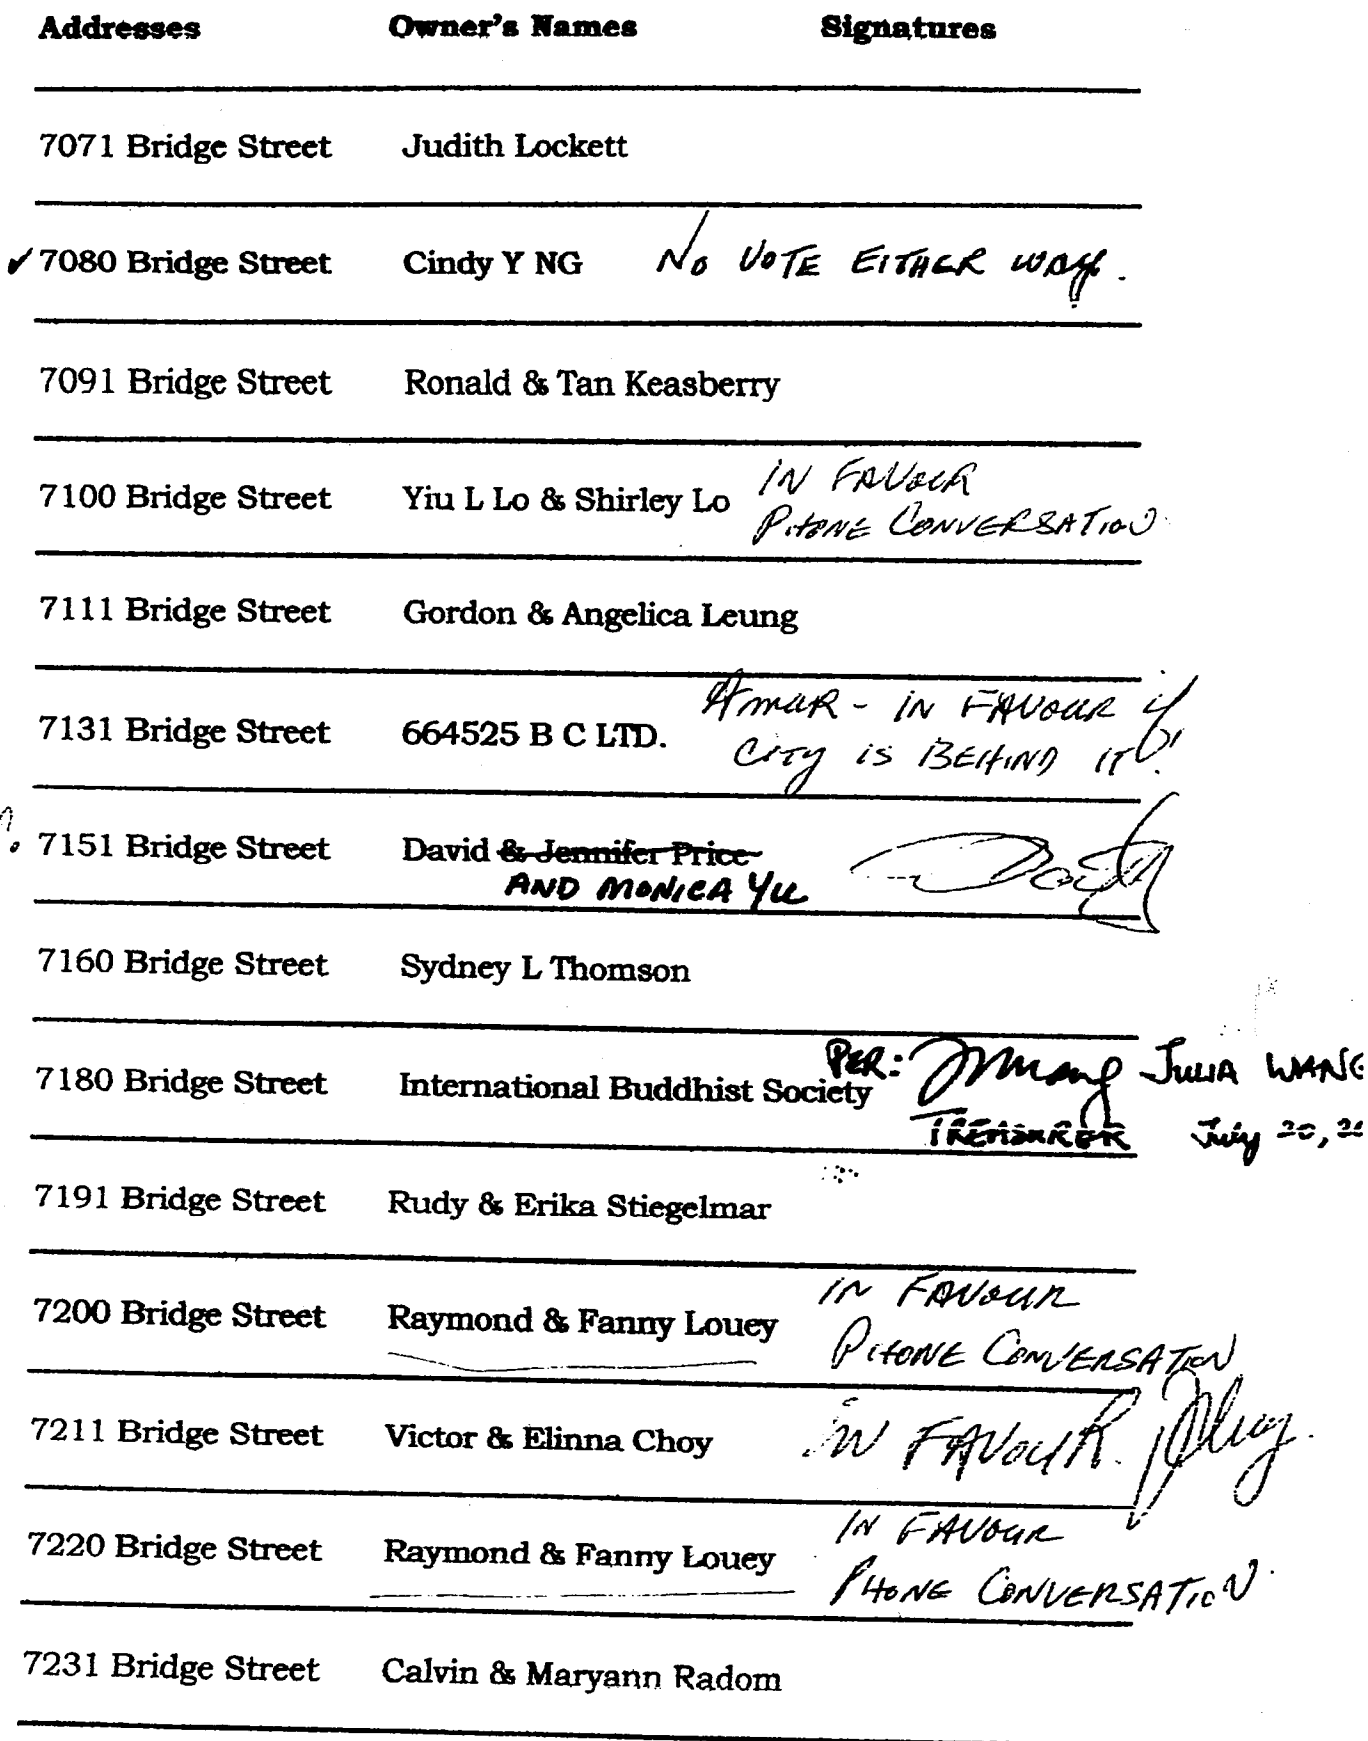 Addresses Owner's Names Signatures
7071 Bridge Street Judith Lockett
✓ 7080 Bridge Street Cindy Y NG No VOTE EITHER WAY.
7091 Bridge Street Ronald & Tan Keasberry
7100 Bridge Street Yiu L Lo & Shirley Lo IN FAVOUR
PHONE CONVERSATION
7111 Bridge Street Gordon & Angelica Leung
7131 Bridge Street 664525 B C LTD. AMAR - IN FAVOUR if
CITY IS BEHIND IT!
7151 Bridge Street David & Jennifer Price
AND MONICA YU
7160 Bridge Street Sydney L Thomson
7180 Bridge Street International Buddhist Society PER: JULIA WANG
TREASURER July 20, 20
7191 Bridge Street Rudy & Erika Stiegelmar
7200 Bridge Street Raymond & Fanny Louey IN FAVOUR
PHONE CONVERSATION
7211 Bridge Street Victor & Elinna Choy IN FAVOUR.
7220 Bridge Street Raymond & Fanny Louey IN FAVOUR
PHONE CONVERSATION
7231 Bridge Street Calvin & Maryann Radom